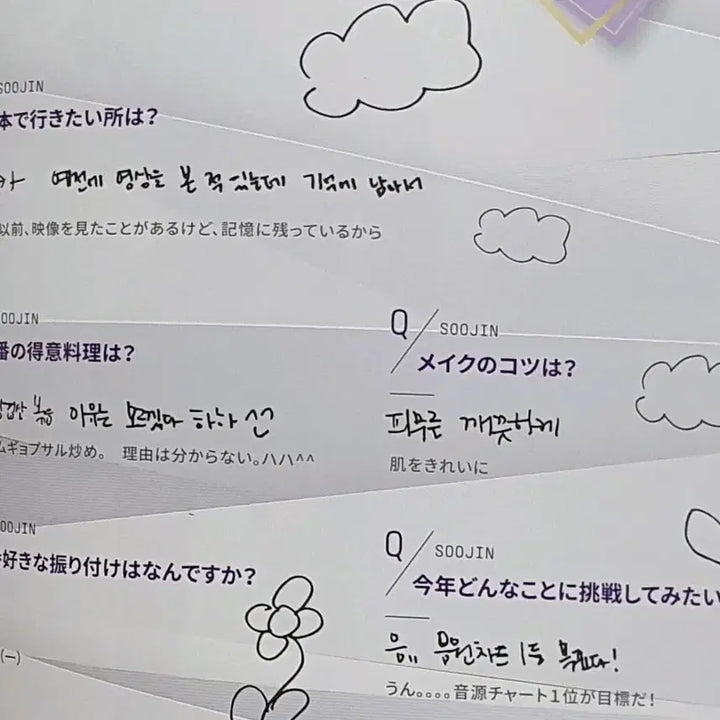 SOOJIN
本で行きたい所は?
예전에 영상을 본 적 있는데 기억에 남아서
以前、映像を見たことがあるけど、記憶に残っているから
SOOJIN
番の得意料理は?
볶음 이유는 모르겠다 하하 ^^
ムギョプサル炒め。 理由は分からない。ハハ^^
Q SOOJIN
メイクのコツは?
피부를 깨끗하게
肌をきれいに
SOOJIN
好きな振り付けはなんですか?
(一)
Q SOOJIN
今年どんなことに挑戦してみたい
음.. 음원차트 1등
うん。。。。音源チャート1位が目標だ!